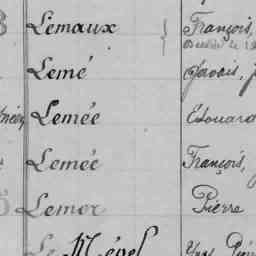 Lemaux } François,
Lemé Gervais,
Lemée Edouard
Lemée François,
Lemor Pierre
Le Ménel Yves